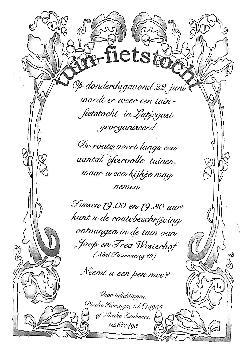 tuin-fietstocht
Op donderdagavond 22 juni
wordt er weer een tuin-
fietstocht in
georganiseerd.
De route voert langs een
aantal sfeervolle tuinen,
waar u een kijkje mag
nemen.
Tussen 19.00 en 19.30 uur
kunt u de routebeschrijving
ontvangen in de tuin van
Joop en Trea Westerhof
Neemt u een pen mee?
Voor inlichtingen: